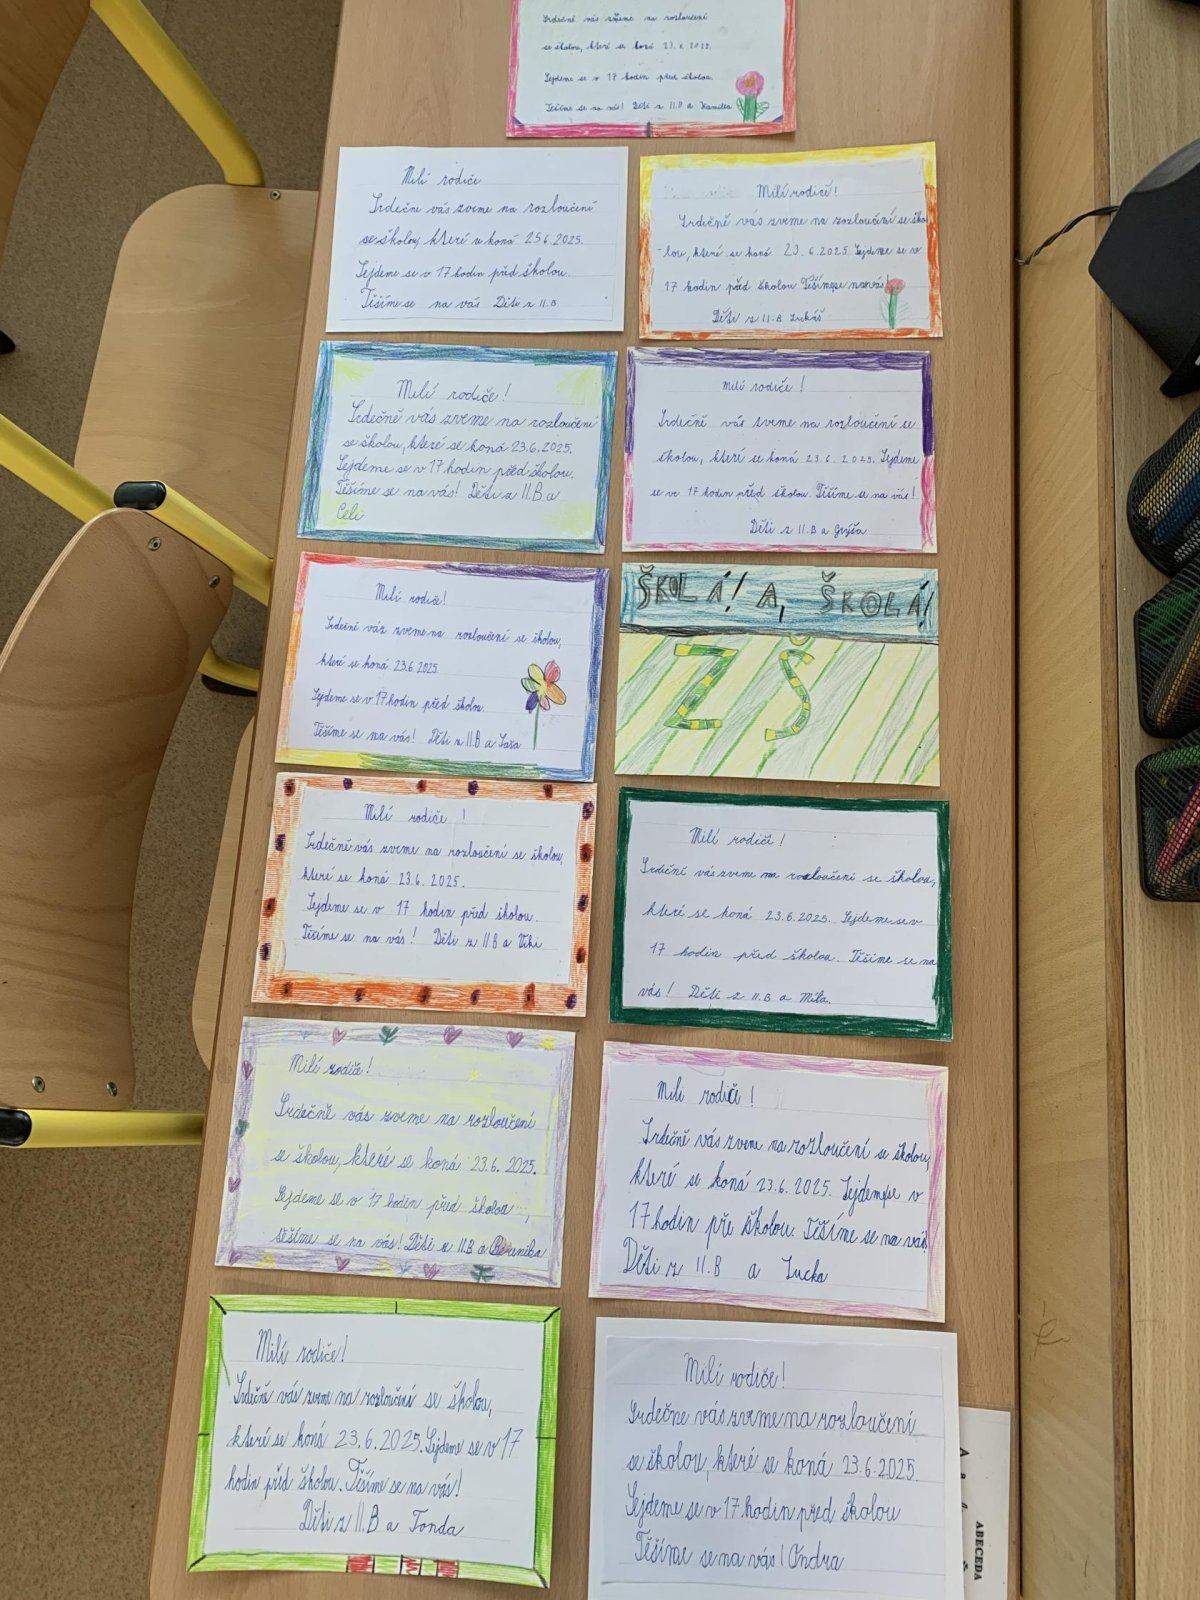 Srdečně vás zveme na rozloučení
se školou, které se koná 23.6.2025.
Sejdeme se v 17 hodin před školou.
Těšíme se na vás! Děti z II.B a Kamilka
Milí rodiče
Srdečne vás zveme na rozloučení
se školou které se koná 25 6. 2025.
Sejdeme se v 17 hodin před školou.
Těšíme se na vás Děti z II.B
Milí rodiče!
Srdečně vás zveme na rozloučení se ško
-lou, které se koná 23.6.2025. Sejdeme se v
17 hodin před školou Těšíme se na vás!
Děti z II.B Lukáš
Milí rodiče!
Srdečně vás zveme na rozloučení
se školou, které se koná 23.6.2025.
Sejdeme se v 17 hodin před školou.
Těšíme se na vás! Děti z II.B a
Celi
Milí rodiče!
Srdečně vás zveme na rozloučení se
školou, které se koná 23.6.2025. Sejdeme
se ve 17 hodin před školou. Těšíme se na vás!
Děti z II.B a Gryša
Milí rodiče!
Srdečně váz zveme na rozloučení se školou,
které se koná 23.6 2025
Sejdeme se v 17 hodin před školou.
Těšíme se na vás! Děti z II.B a Saša
ŠKOLÁ! A, ŠKOLÁ!
ZŠ
Milí rodiče !
Srdečně vás zveme na rozloučení se školou,
které se koná 23.6.2025.
Sejdeme se v 17 hodin před školou.
Těšíme se na vás! Děti z II.B a Viki
Milí rodiče!
Srdeční vás zveme na rozloučení se školou,
které se koná 23.6.2025. Sejdeme se v
17 hodin před školou. Těšíme se na
vás! Děti z II.B a Míla.
Milí rodiče!
Srdečně vás zveme na rozloučení
se školou, které se koná 23.6.2025.
Sejdeme se v 17 hodin před školou
těšíme se na vás! Děti z II.B a Berenika
Milí rodiči!
Srdečně vás zveme na rozloučení se školou,
které se koná 23.6.2025. Sejdeme se v
17 hodin pře školou. Těšíme se na vás
Děti z II.B a Lucka
Milí rodiče!
Srdečně vás zveme na rozloučení se školou,
které se koná 23.6.2025. Sejdeme se v 17
hodin před školou. Těšíme se na vás!
Děti z II.B a Tonda
Milí rodiče!
Srdečne vás zveme na rozloučení
se školou, které se koná 23.6.2025.
Sejdeme se v 17 hodin před školou
Těšíme se na vás! Ondra
ABECEDA